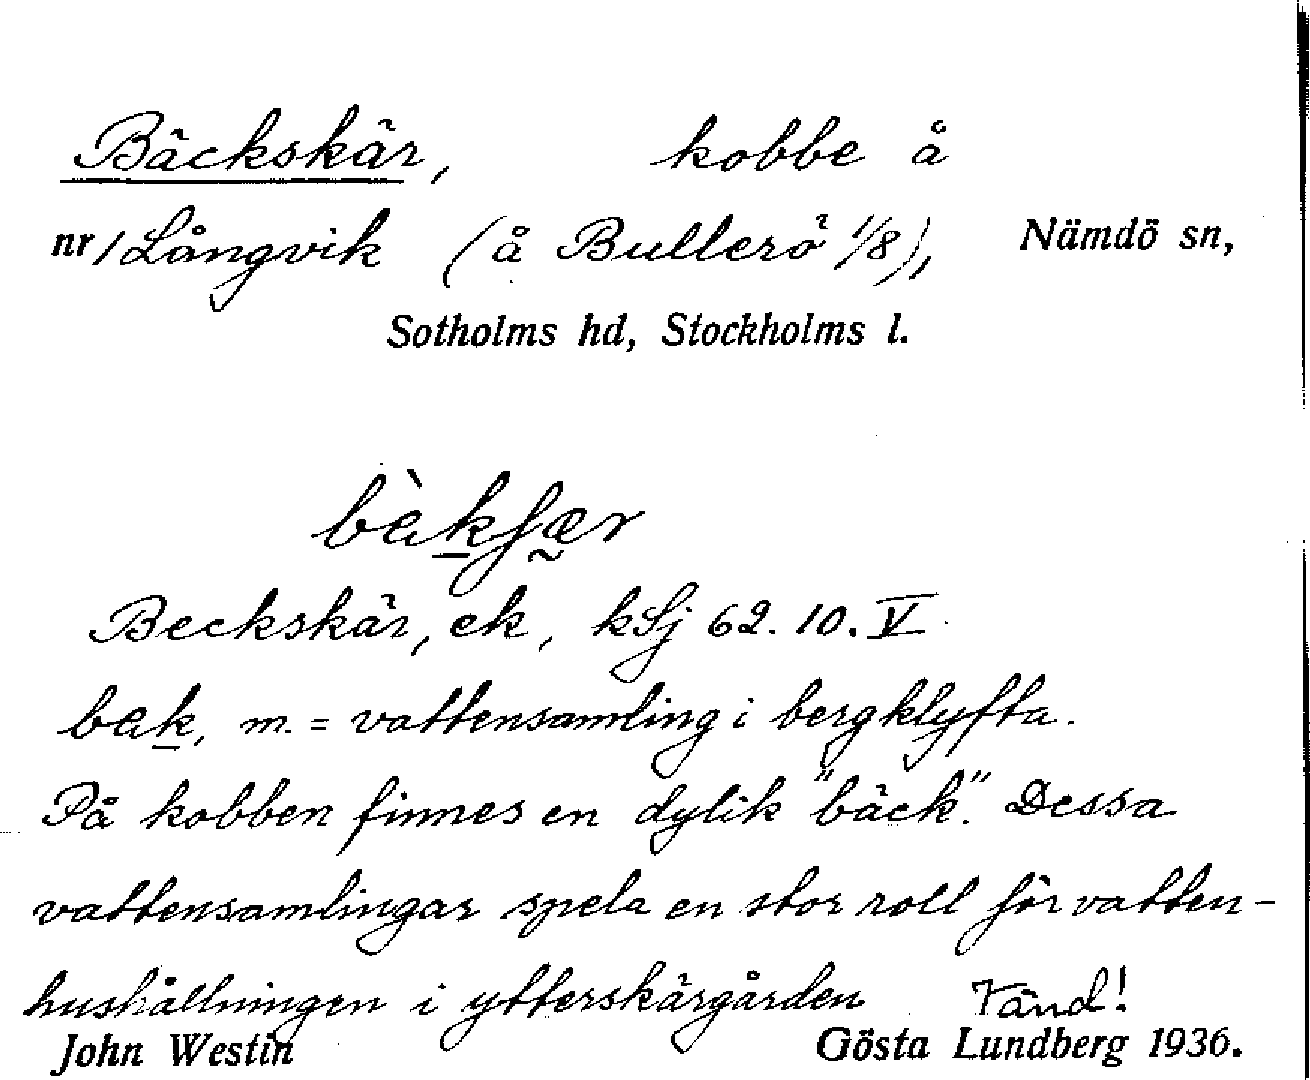 Bäckskär, kobbe å
nr/Långvik (å Bullerö 1/8), Nämdö sn,
Sotholms hd, Stockholms l.
Beckskär, ek, kSj 62. 10. V
bak, m. = vattensamling i bergklyfta.
På kobben finnes en dylik "bäck". Dessa
vattensamlingar spela en stor roll för vatten-
hushållningen i ytterskärgården Vänd!
John Westin Gösta Lundberg 1936.